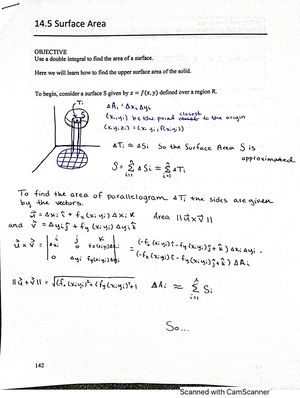 14.5 Surface Area
OBJECTIVE
Use a double integral to find the area of a surface.
Here we will learn how to find the upper surface area of the solid.
To begin, consider a surface S given by z = f(x, y) defined over a region R.
ΔAi = Δxi Δyi
closest
(xi, yi) be the point to the origin
(xi, yi, zi) = (xi, yi, f(xi, yi))
ΔTi ≈ ΔSi So the Surface Area S is
approximated
S = Σ ΔSi ≈ Σ ΔTi
To find the area of parallelogram ΔTi the sides are given
by the vectors.
u = Δxi i + fx(xi yi) Δxi k Area ||u × v||
and v = Δyi j + fy(xi yi) Δyi k
u × v = | i j k
Δxi 0 fx(xi yi)Δxi
0 Δyi fy(xi yi)Δyi | = (-fx(xi yi)i - fy(xi yi)j + k) Δxi Δyi =
(-fx(xi yi)i - fy(xi yi)j + k) ΔAi
||u × v|| = √(fx(xi yi))² + (fy(xi yi))² + 1 ΔAi ≈ Σ Si
So...
142
Scanned with CamScanner